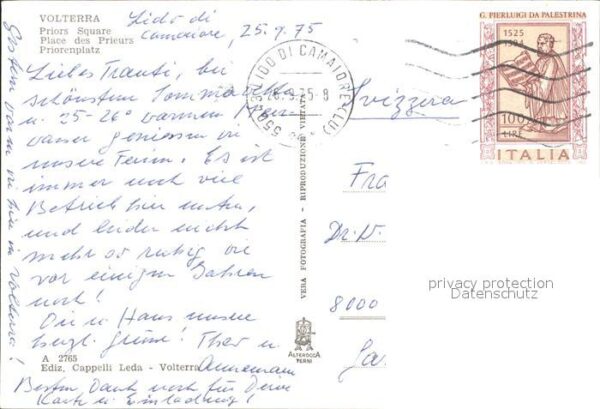 VOLTERRA
Priors Square
Place des Prieurs
Priorenplatz
Lido di
Camaiore, 25.9.75
Liebes Trauti, bei
schönstem Sommerwetter
u. 25-26° warmem Meer-
wasser geniessen wir
unsere Ferien. Es ist
immer noch viel
Betrieb hier unten,
und leider nicht
mehr so ruhig wie
vor einigen Jahren
noch!
Dir u. Hans unsere
herzl. Grüsse! Theo u.
Annemarie
Besten Dank noch für Deine
Karte u. Einladung!
Gestern waren wir hier in Volterra!
A 2765
Ediz. Cappelli Leda - Volterra
VERA FOTOGRAFIA - RIPRODUZIONE VIETATA
ALTEROCCA
TERNI
LIDO DI CAMAIORE (LU)
G. PIERLUIGI DA PALESTRINA
1525
100
LIRE
ITALIA
Svizzera
Fra
Dr. W.
8000
privacy protection
Datenschutz